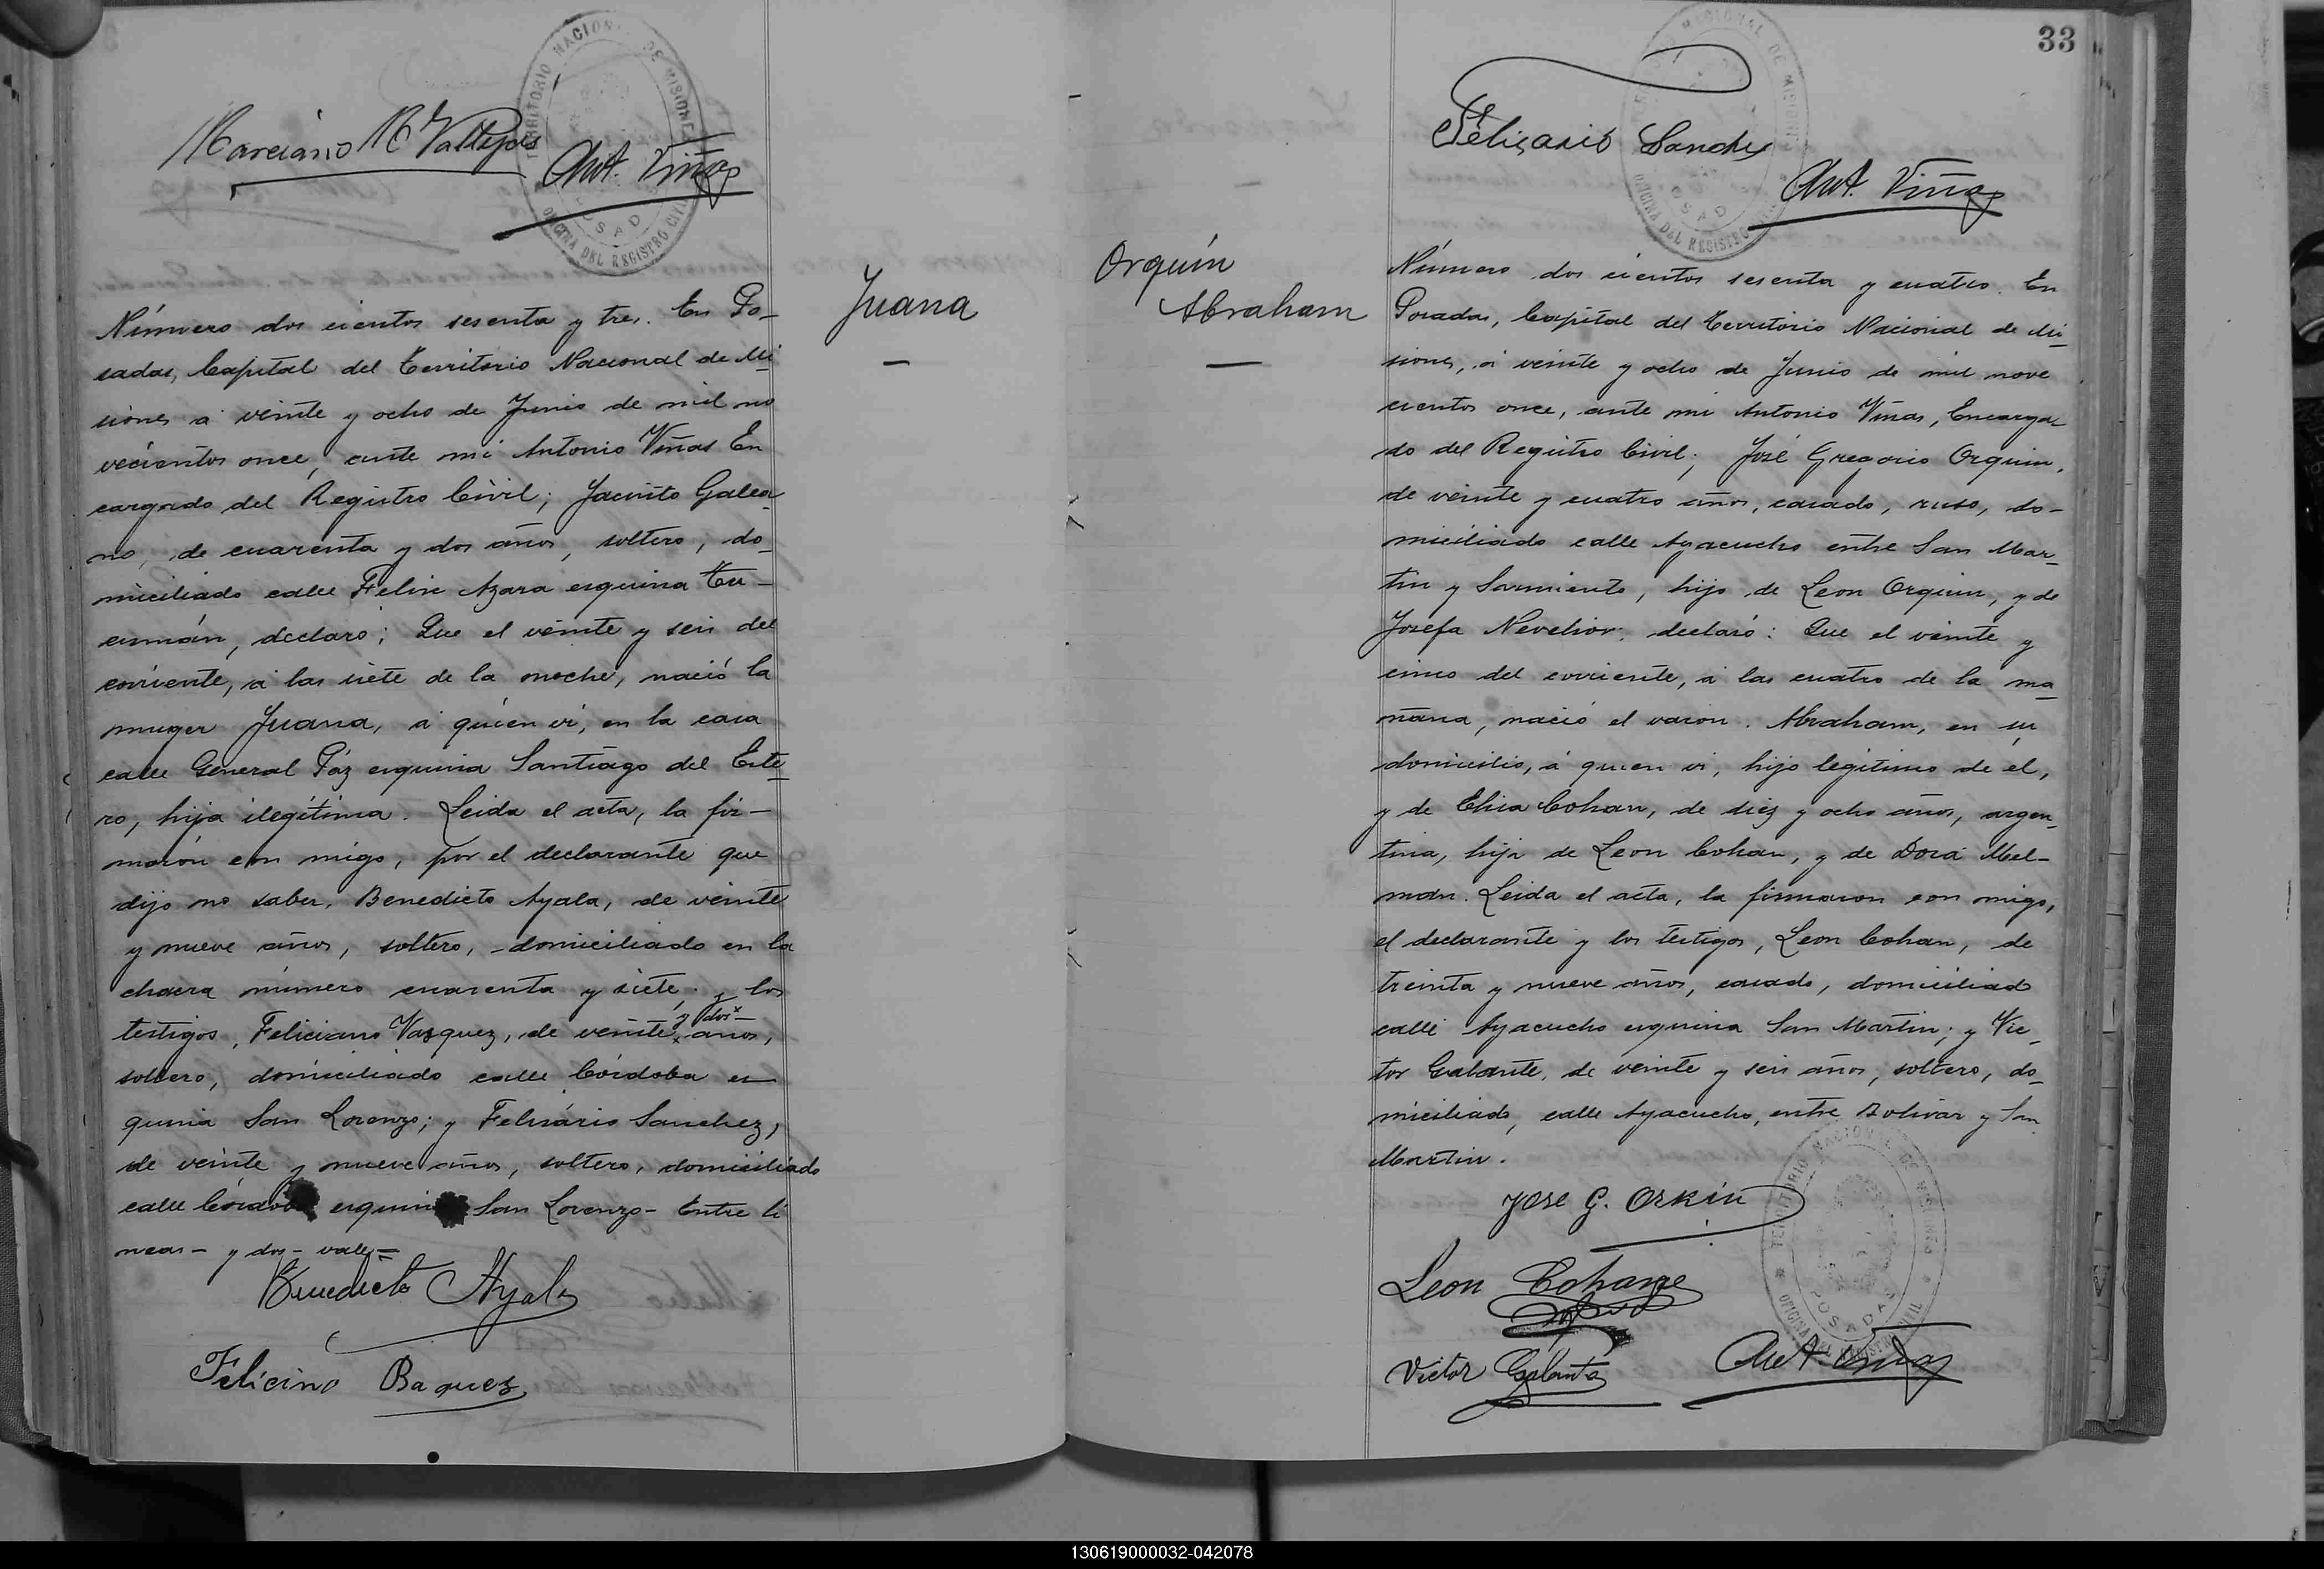 Marciano M Vallejos
Ant. Viñas
TERRITORIO NACIONAL DE MISIONES
OFICINA DEL REGISTRO CIVIL
Juana
Número dos cientos sesenta y tres. En Po-
sadas, Capital del Territorio Nacional de Mi
siones á veinte y ocho de Junio de mil no
vecientos once, ante mi Antonio Viñas En
cargado del Registro Civil; Jacinto Galea
no, de cuarenta y dos años, soltero, do-
miciliado calle Felix Azara esquina Tu-
cumán, declaró; Que el veinte y seis del
corriente, á las siete de la noche, nació la
muger Juana, á quien vi, en la casa
calle General Páz esquina Santiago del Este
ro, hija ilegítima. Leida el acta, la fir-
marón con migo, por el declarante que
dijo no saber, Benedicto Ayala, de veinte
y nueve años, soltero, domiciliado en la
chacra número cuarenta y siete; y los
testigos, Feliciano Vazquez, de veinte y dos años,
soltero, domiciliado calle Córdoba es
quina San Lorenzo; y Felisário Sanchez,
de veinte y nueve años, soltero, domiciliado
calle Córdoba esquina San Lorenzo - Entre lí
neas - y dos - vale -
Benedicto Ayala
Felicino Baquez
33
Felisario Sanches
Ant. Viñas
OFICINA DEL REGISTRO
Orquin
Abraham
Número dos cientos sesenta y cuatro. En
Posadas, Capital del Territorio Nacional de Mi
siones, á veinte y ocho de Junio de mil nove
cientos once, ante mi Antonio Viñas, Encarga
do del Registro Civil; José Gregorio Orquin,
de veinte y cuatro años, casado, ruso, do-
miciliado calle Ayacucho entre San Mar-
tin y Sarmiento, hijo de Leon Orquin, y de
Josefa Nevelior, declaró: Que el veinte y
cinco del corriente, á las cuatro de la ma
ñana, nació el varon Abraham, en su
domicilio, á quien vi, hijo legítimo de él,
y de Chia Cohan, de diez y ocho años, argen-
tina, hija de Leon Cohan, y de Dora Mel-
man. Leida el acta, la firmaron con migo,
el declarante y los testigos, Leon Cohan, de
treinta y nueve años, casado, domiciliado
calle Ayacucho esquina San Martin; y Vic-
tor Galante, de veinte y seis años, soltero, do-
miciliado, calle Ayacucho, entre Bolivar y San
Martin.
Jose G. Orkin
Leon Cohan
Victor Galante
Ant. Viñas
TERRITORIO NACIONAL DE MISIONES
POSADAS
OFICINA DEL REGISTRO CIVIL
130619000032-042078